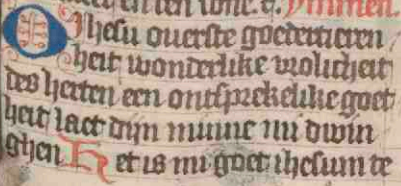 ten tone. c. ymmen.
O Ihesu ouerste goedertieren
heit wonderlike vrolicheit
des herten een ontsprekelike goet
heit laet dijn minne mi dwin
ghen Het is mi goet ihesum te